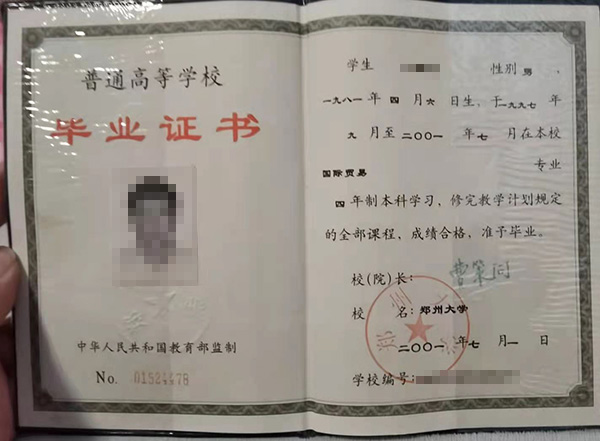 普通高等学校
毕业证书
中华人民共和国教育部监制
No.
学生 性别 男 ,
一九八一年 四 月 六 日生，于一九九七 年
九 月至 二〇〇一 年 七 月在本校
国际贸易 专业
四 年制本科学习，修完教学计划规定
的全部课程，成绩合格，准予毕业。
校(院)长：
校 名：郑州大学
二〇〇一 年 七 月 一 日
学校编号：